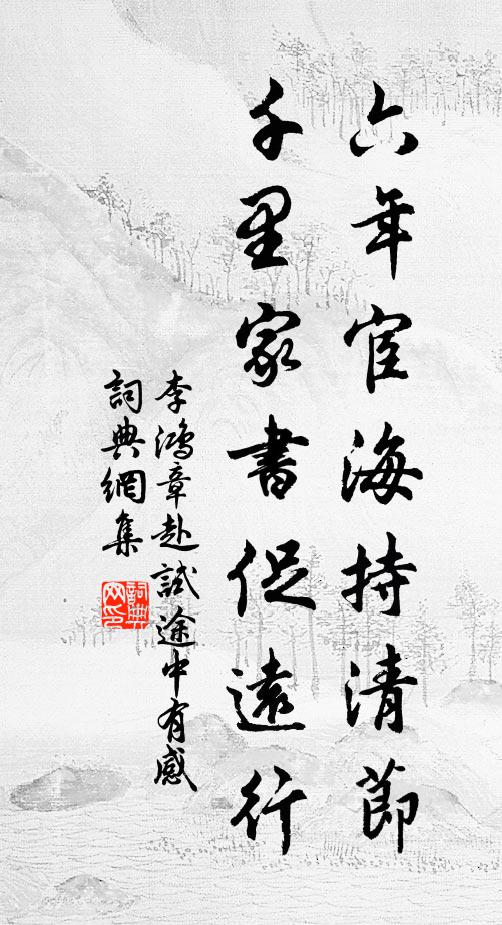 六年宦海持清節
千里家書促遠行
李鴻章赴試途中有感
詞典網集
詞典
网印